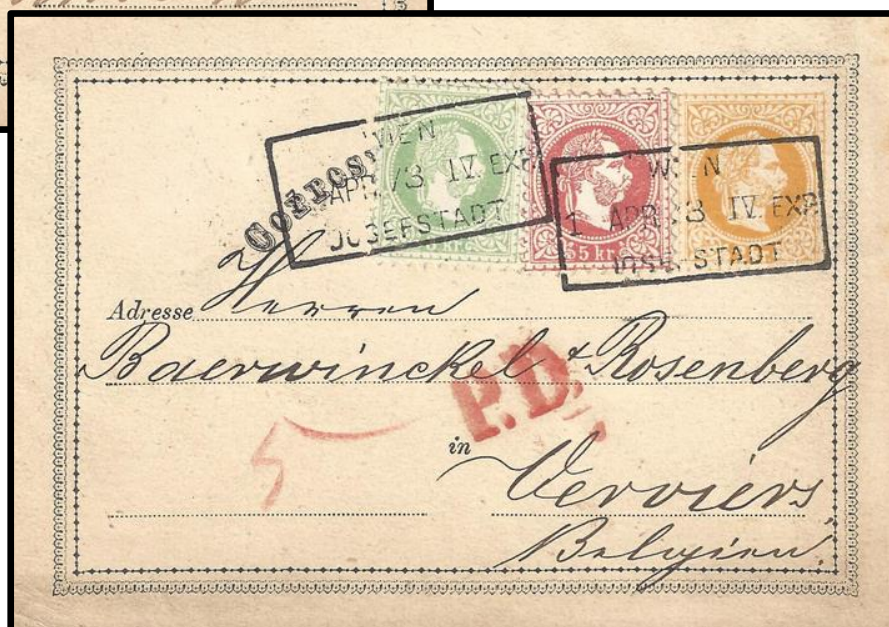 WIEN
APR 73 IV. EXP.
JOSEFSTADT
W N
1 APR 73 IV. EXP.
JOSEFSTADT
Corres
5 kr
Adresse Herren
Baerwinckel & Rosenberg
P.D.
5
in Verviers
Belgien